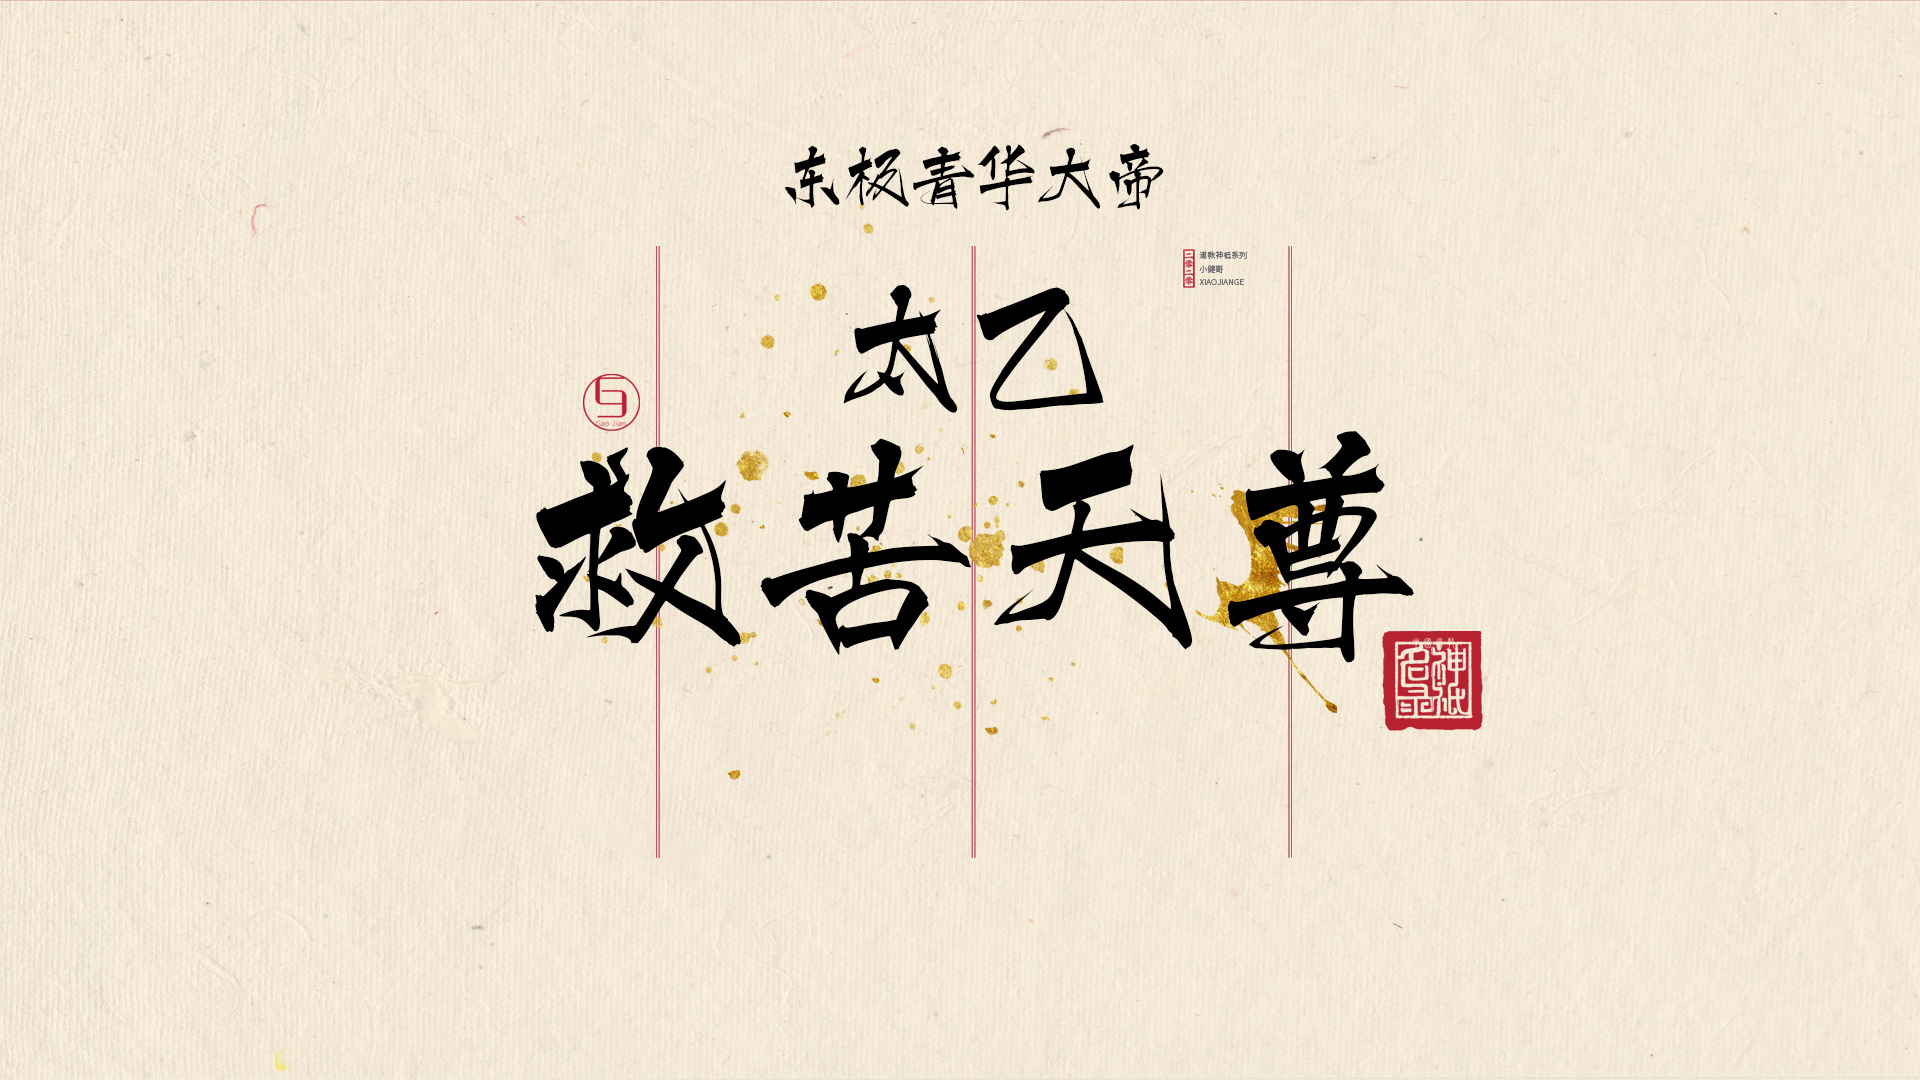 东极青华大帝
二零二零
道教神祇系列
小健哥
XIAOJIANGE
太乙
Gao Jian
救苦天尊
神祇
名录